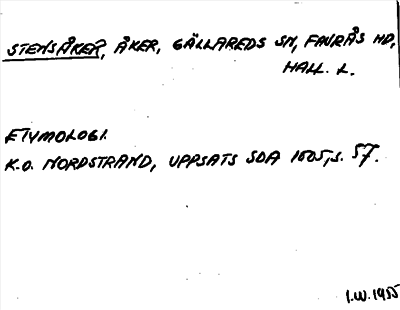 STENSÅKER, ÅKER, GÄLLAREDS SN, FAURÅS HD,
HALL. L.
ETYMOLOGI.
K.O. NORDSTRAND, UPPSATS SDA 1605, S. 57.
I.W. 1955